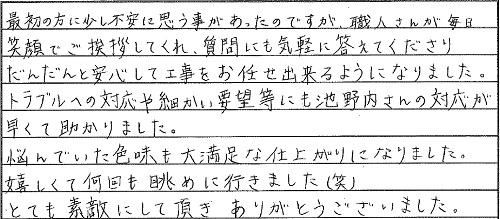 最初の方に少し不安に思う事があったのですが、職人さんが毎日
笑顔でご挨拶してくれ、質問にも気軽に答えてくださり
だんだんと安心して工事をお任せ出来るようになりました。
トラブルへの対応や細かい要望等にも池野内さんの対応が
早くて助かりました。
悩んでいた色味も大満足な仕上がりになりました。
嬉しくて何回も眺めに行きました(笑)
とても素敵にして頂き ありがとうございました。